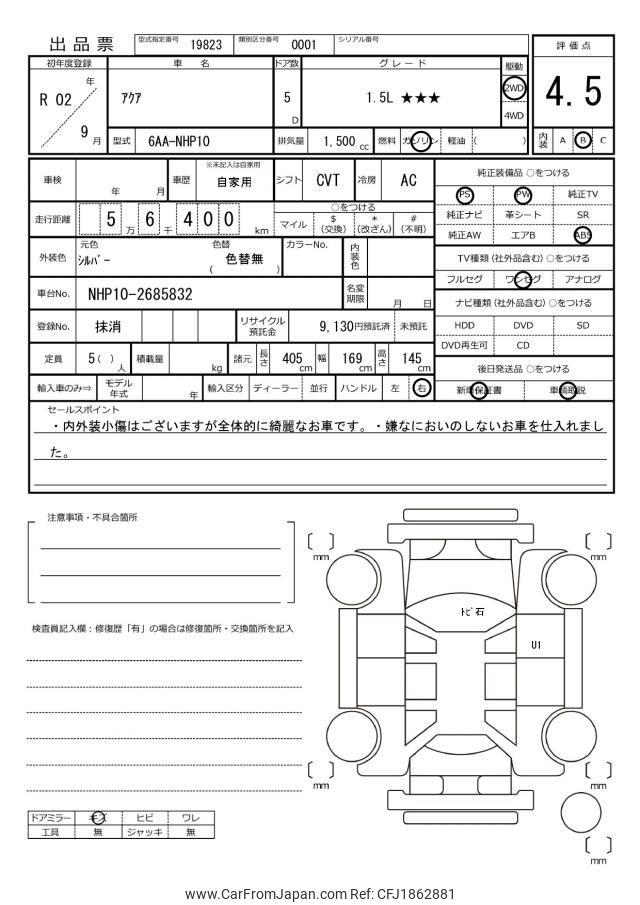 出品票 型式指定番号 19823 類別区分番号 0001 シリアル番号 評価点
初年度登録 車名 ドア数 グレード 駆動
R 02 年 9 月 ｱｸｱ 5 D 1.5L ★★★ 2WD 4WD 4.5
型式 6AA-NHP10 排気量 1,500 cc 燃料 ガソリン 軽油 ( ) 内装 A B C
車検 年 月 車歴 ※未記入は自家用 自家用 シフト CVT 冷房 AC 純正装備品 ○をつける
PS PW 純正TV
走行距離 5 万 6 千 4 0 0 km ○をつける
マイル $ (交換) * (改ざん) # (不明)
純正ナビ 革シート SR
純正AW エアB ABS
外装色 元色 ｼﾙﾊﾞｰ 色替 ( 色替無 ) カラーNo. 内装色
TV種類 (社外品含む) ○をつける
フルセグ ワンセグ アナログ
車台No. NHP10-2685832 名変期限 月 日
ナビ種類 (社外品含む) ○をつける
登録No. 抹消 リサイクル預託金 9,130円預託済 未預託
HDD DVD SD
DVD再生可 CD
定員 5 ( ) 人 積載量 kg 諸元 長さ 405 cm 幅 169 cm 高さ 145 cm
後日発送品 ○をつける
輸入車のみ⇒ モデル年式 年 輸入区分 ディーラー 並行 ハンドル 左 右
新車保証書 車輌取説
セールスポイント
・内外装小傷はございますが全体的に綺麗なお車です。・嫌なにおいのしないお車を仕入れまし
た。
注意事項・不具合箇所
検査員記入欄：修復歴「有」の場合は修復箇所・交換箇所を記入
mm
mm
ﾄﾋﾞ石
U1
mm
mm
mm
ドアミラー キズ ヒビ ワレ
工具 無 ジャッキ 無
www.CarFromJapan.com Ref: CFJ1862881